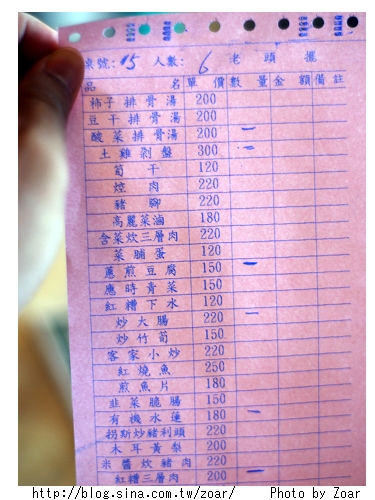 桌號: 15 人數: 6 老 頭 擺
品 名 單 價 數 量 金 額 備 註
柿子排骨湯 200
豆干排骨湯 200
酸菜排骨湯 200 一
土雞剁盤 300 一
筍干 120
焢肉 220
豬腳 220
高麗菜滷 180
含菜炊三層肉 220
菜脯蛋 120
蔥煎豆腐 150 一
應時青菜 150
紅糟下水 120
炒大腸 220 一
炒竹筍 150
客家小炒 220
紅燒魚 250
煎魚片 180
韭菜脆腸 150
有機水蓮 180 一
拐斯炒豬利頭 220
木耳黃梨 200
米醬炊豬肉 220
紅糟三層肉 200 一
http://blog.sina.com.tw/zoar/ Photo by Zoar